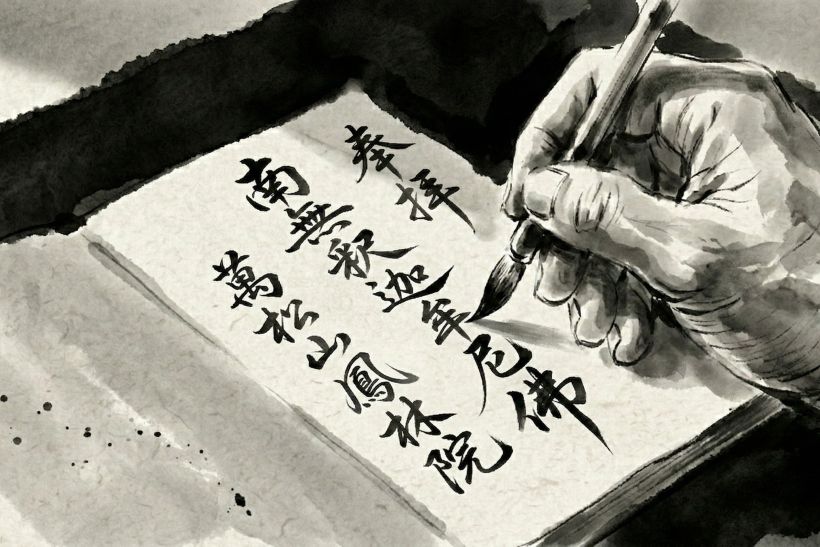 奉拝
南無釈迦牟尼佛
萬松山鳳林院